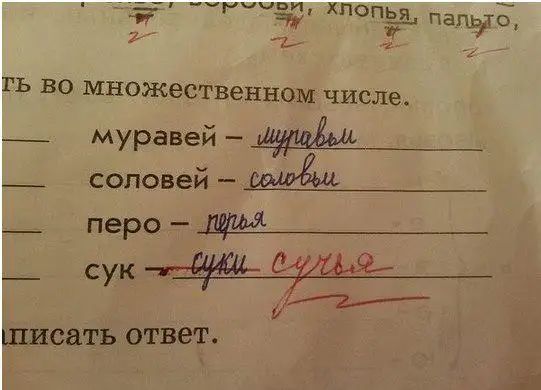 воробьи, хлопья, пальто,
ть во множественном числе.
муравей – муравьи
соловей – соловьи
перо – перья
сук – суки сучья
аписать ответ.